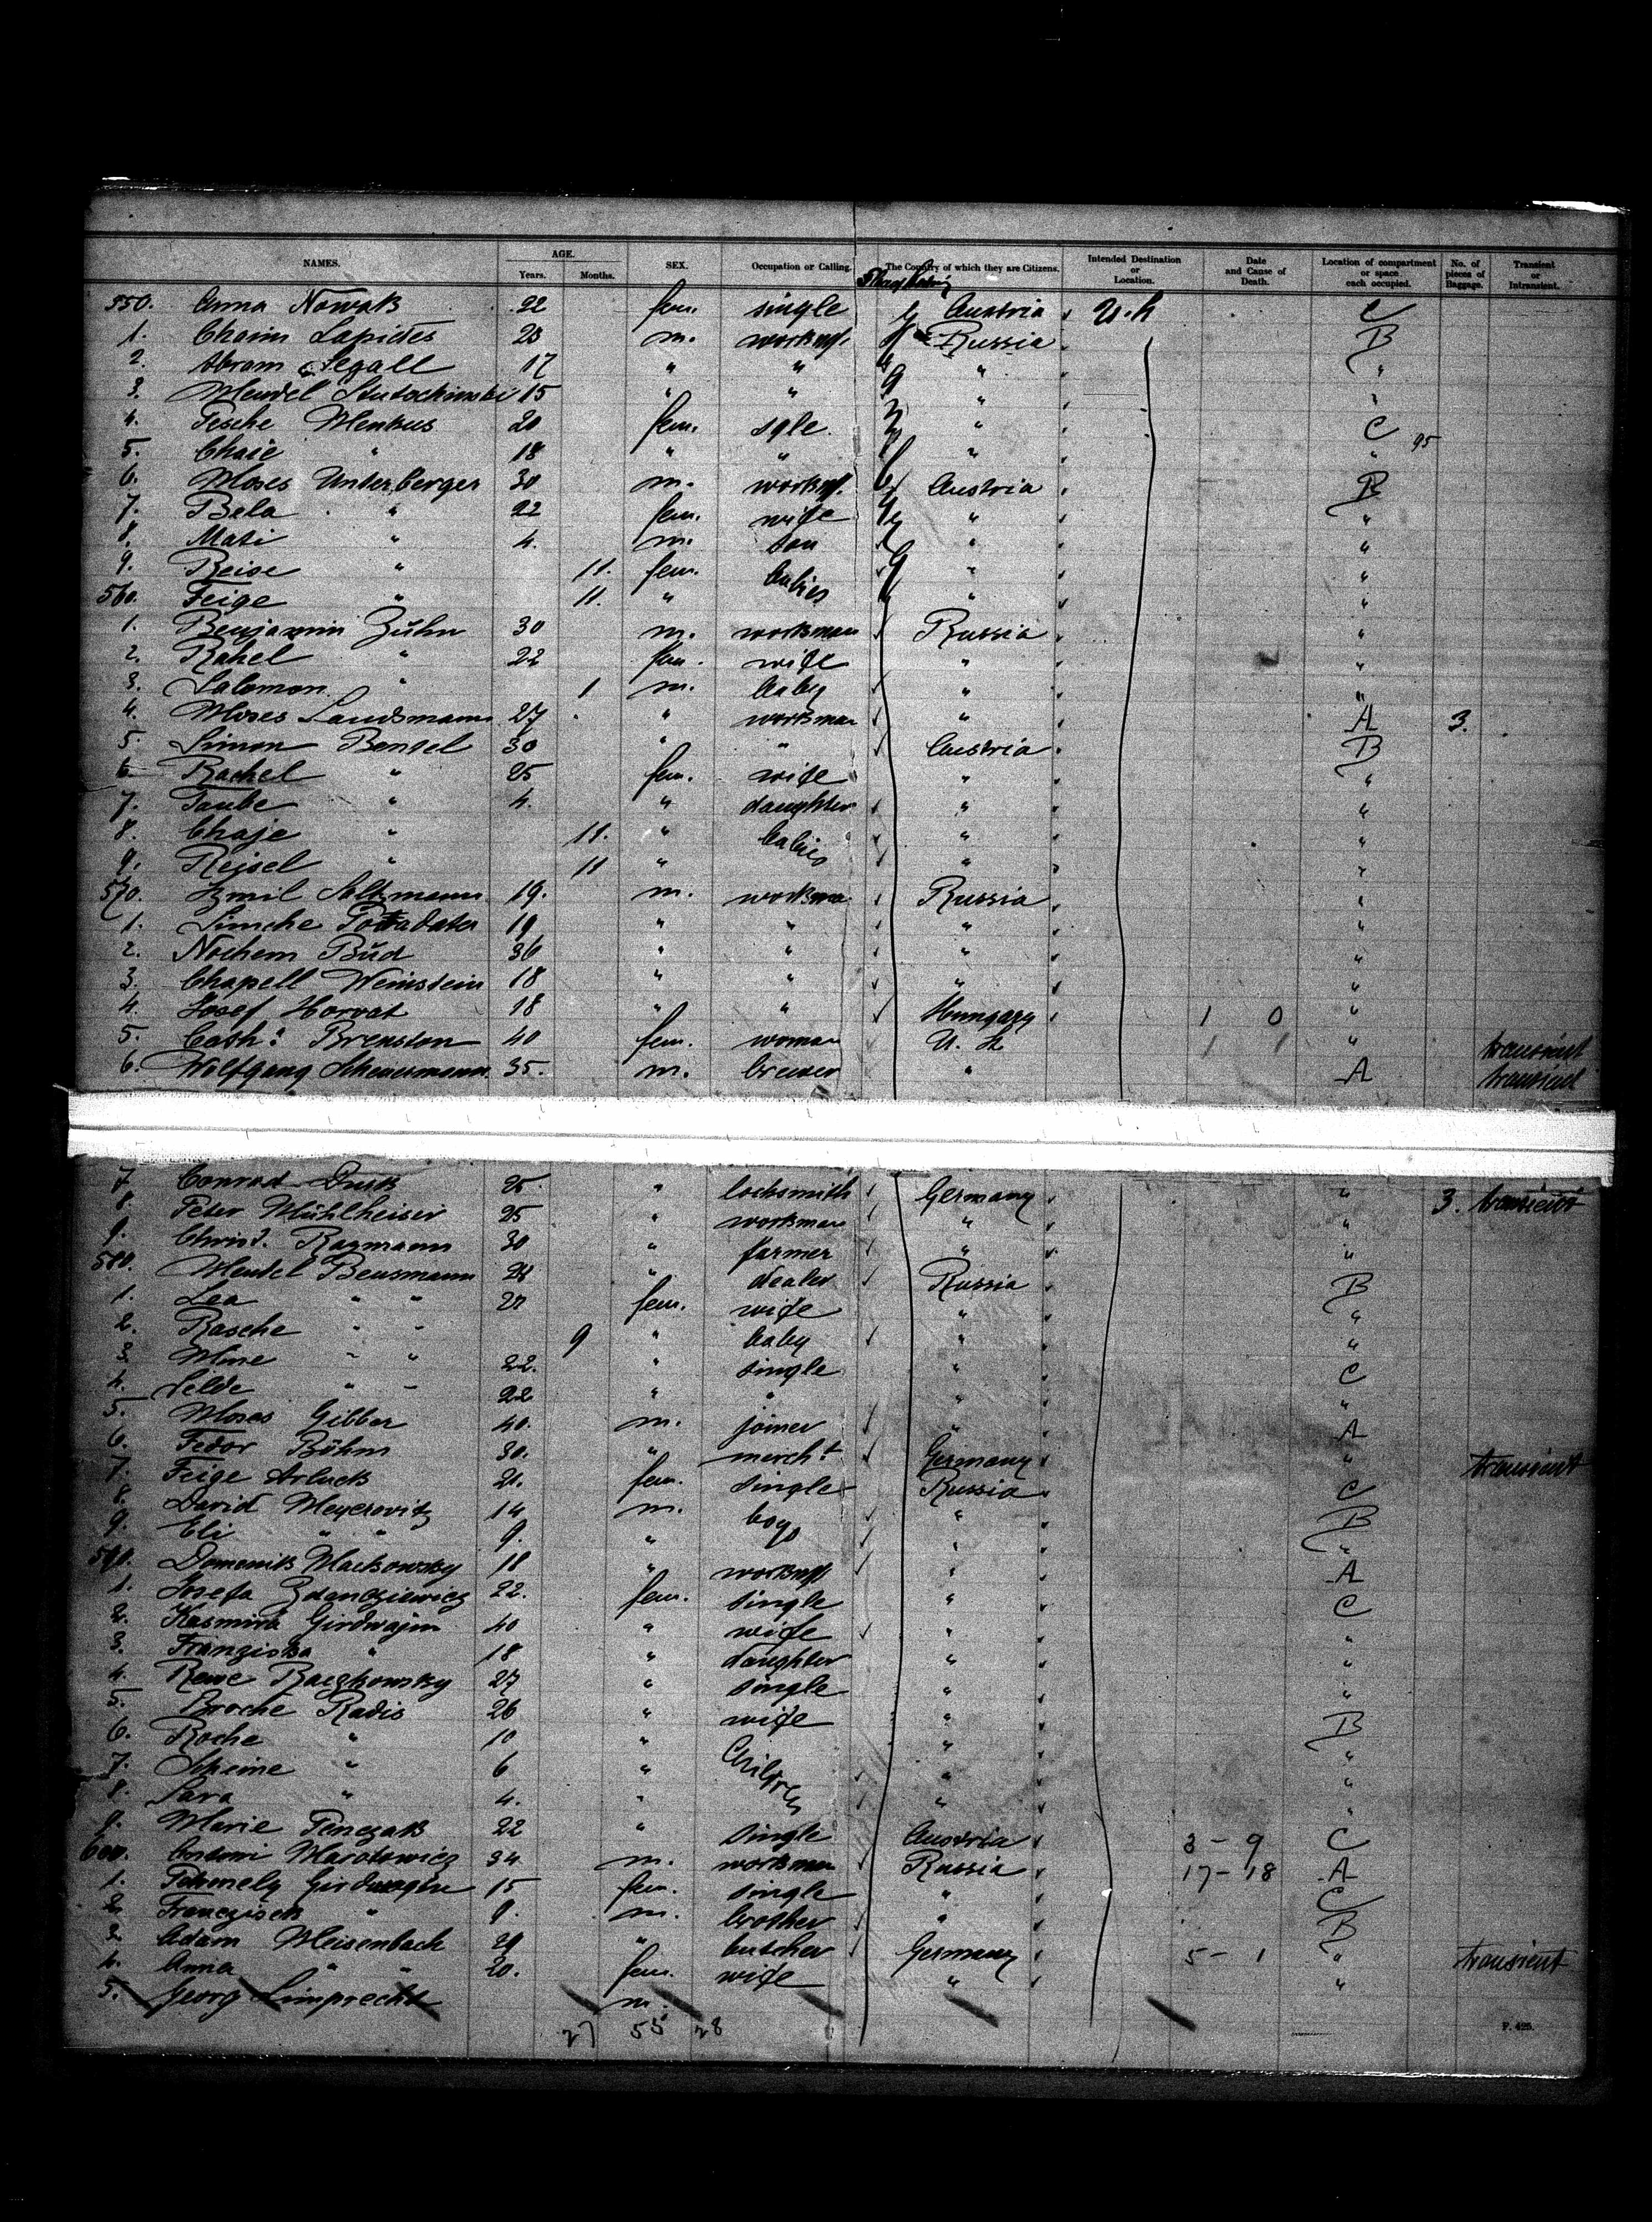 NAMES. AGE. Years. Months. SEX. Occupation or Calling. The Country of which they are Citizens. Intended Destination or Location. Date and Cause of Death. Location of compartment or space each occupied. No. of pieces of Baggage. Transient or Intransient.
550. Anna Nowak 22 fem. single Austria C
1. Chaim Lapides 23 m. workm. Russia B
2. Abram Segall 17 " " " "
3. Mendel 15 " " " "
4. Tesche Menkus 20 fem. sgle. " C 95
5. Chaie " 18 " " " "
6. Moses Unterberger 30 m. workm. Austria B
7. Bela " 22 fem. wife " "
8. Mati " 4. m. son " "
9. Reise " 11. fem. babies " "
560. Feige " 11. " " "
1. Benjamin Zuhn 30 m. workman Russia "
2. Rahel " 22 fem. wife " "
3. Salomon " 1 m. baby " "
4. Moses Landsmann 27 " workman " A 3.
5. Simon Bensel 30 " " Austria B
6. Rachel " 25 fem. wife " "
7. Taube " 4. " daughter " "
8. Chaje " 11. " babies " "
9. Rejsel " 11 " " "
570. Saltzmann 19. m. workman Russia "
1. Simche 19 " " " "
2. Nochem Bud 36 " " " "
3. Chapell Weinstein 18 " " " "
4. Josef Horvat 18 " " Hungary 1 0 "
5. Cath: Brenston 40 fem. woman "
transient
6. Wolfgang Scheuermann 35. m. brewer " A transient
7. Conrad 25 " locksmith Germany " 3. transient
8. Peter Mühlheiser 25 " workman " "
9. Christ. Ragmann 30 " farmer " "
580. Mendel Bensmann 28 " dealer Russia B
1. Lea " " 27 fem. wife " "
2. Rasche " " 9 " baby " "
3. Mine " " 22. " single " C
4. Selde " " 22 " " " "
5. Moses Gibber 40. m. joiner " A
6. Fedor Böhm 30. " mercht Germany " transient
7. Feige Arluck 21. fem. single Russia C
8. David Meyerovitz 14 m. boys " B
9. Eli " " 9. " " "
590. Domenik Mackowsky 18 " workm. " A
1. Josefa 22. fem. single " C
2. Kasmira Girdwajnn 40 " wife " "
3. Franziska " 18 " daughter " "
4. Raczkowsky 27 " single " "
5. Broche Radis 26 " wife " B
6. Roche " 10 " Children " "
7. Scheine " 6 " " "
8. Sara " 4. " " "
9. Marie Penczak 22 " single Austria 3 - 9 C
600. Antoni 34 m. workman Russia 17 - 18 A
1. 15 fem. single " C
2. Franczisek " 9. m. brother " B
3. Adam Meisenbach 29 " butcher Germany 5 - 1 " transient
4. Anna " " 20. fem. wife " "
5. Georg Limprecht m.
27 55 28
F. 425.